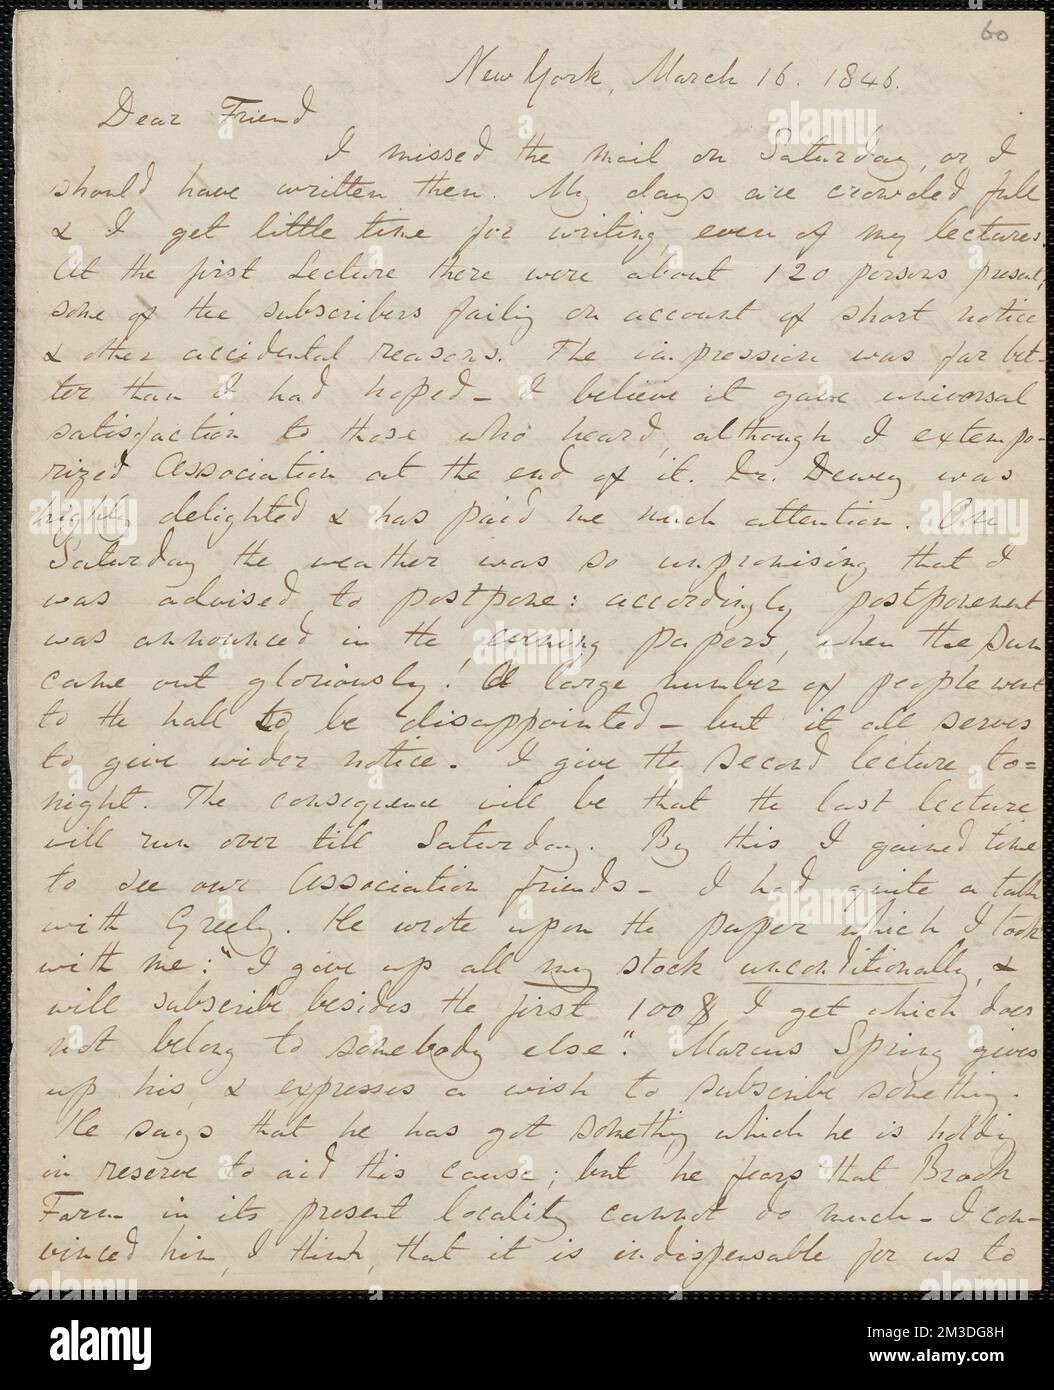 60
New York, March 16. 1846.
Dear Friend
I missed the mail on Saturday, or I
should have written then. My days are crowded full
& I get little time for writing, even of my lectures.
At the first Lecture there were about 120 persons present,
some of the subscribers failing on account of short notice
& other accidental reasons. The impression was far bet-
ter than I had hoped – I believe it gave universal
satisfaction to those who heard, although I extempo-
rized Association at the end of it. Dr. Dewey was
highly delighted & has paid me much attention. On
Saturday the weather was so unpromising that I
was advised to postpone: accordingly postponement
was announced in the evening papers, when the Sun
came out gloriously! A large number of people went
to the hall to be disappointed – but it all serves
to give wider notice. I give the second lecture to=
night. The consequence will be that the last lecture
will run over till Saturday. By this I gained time
to see our Association friends – I had quite a talk
with Greely. He wrote upon the paper which I took
with me: "I give up all my stock unconditionally, &
will subscribe besides the first 100$ I get which does
not belong to somebody else". Marcus Spring gives
up his, & expresses a wish to subscribe something.
He says that he has got something which he is holding
in reserve to aid this cause; but he fears that Brook
Farm in its present locality cannot do much – I con-
vinced him, I think, that it is indispensable for us to
alamy
Image ID: 2M3DG8H
www.alamy.com